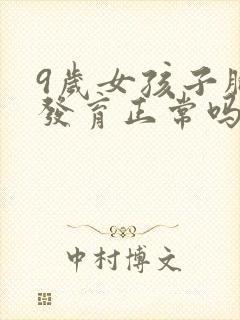 9歲女孩子胸
發育正常吗
中村博文